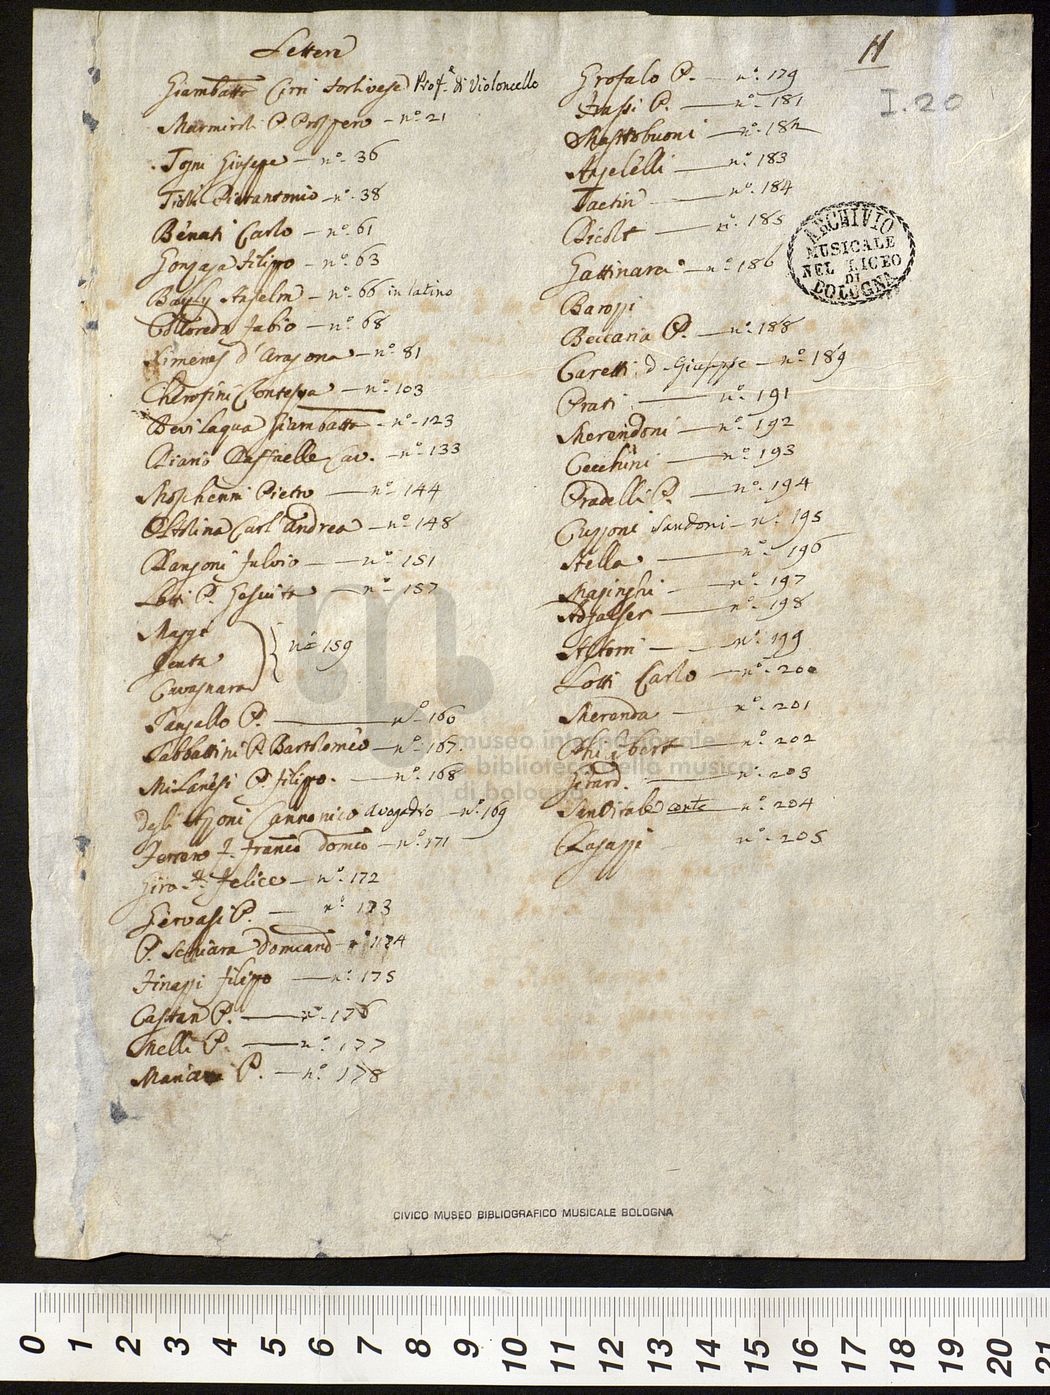 Lettere
Giambatta Cirri forlivese Prof.e di Violoncello
Marmiroli P. Prospero - n.o 21
Togni Giuseppe - n.o 36
Tioli Pietrantonio - n.o 38
Benati Carlo - n.o 61
Gonzaga Filippo - n.o 63
Bayly Anselm - n.o 66 in latino
Colloredo Fabio - n.o 68
Ximenes d'Aragona - n.o 81
Cherofini Contessa - n.o 103
Bevilaqua Giambatta - n.o 123
Diario Raffaelle Cav. - n.o 133
Moschenni Pietro - n.o 144
Ottolina Carl'andrea - n.o 148
Ranzoni Fulvio - n.o 151
Lotti P. Gesuita - n.o 157
Maggi
Penta
Cavagnara
n.o 159
Sangallo P. - n.o 160
Sabbattini P. Bartolomeo - n.o 167
Milanesi P. Filippo - n.o 168
degli Azzoni Cannonico Avogadro - n.o 169
Ferrero P. Franco Domco - n.o 171
Felice - n.o 172
Gervasi P. - n.o 173
P. Schiara Domicano - n.o 174
Finazzi Filippo - n.o 175
Castan P. - n.o 176
Melli P. - n.o 177
P. - n.o 178
11
I. 20
Grofalo P. - n.o 179
Frassi P. - n.o 181
Mastrobuoni - n.o 182
Angelelli - n.o 183
n.o 184
n.o 185
Gattinara - n.o 186
Barozzi
Beccaria P. - n.o 188
Caretti d. Giuseppe - n.o 189
Prati - n.o 191
Merendoni - n.o 192
Cecchini - n.o 193
Pradelli P. - n.o 194
Guzzoni Sandoni - n.o 195
Stella - n.o 196
Masinghi - n.o 197
n.o 198
n.o 199
Lotti Carlo - n.o 200
Meranda - n.o 201
n.o 202
Gerard. - n.o 203
Sandirale conte - n.o 204
Ragazzi n.o 205
ARCHIVIO
MUSICALE
NEL LICEO
DI
BOLOGNA
museo internazionale
e biblioteca della musica
di bologna
CIVICO MUSEO BIBLIOGRAFICO MUSICALE BOLOGNA
0 1 2 3 4 5 6 7 8 9 10 11 12 13 14 15 16 17 18 19 20 21